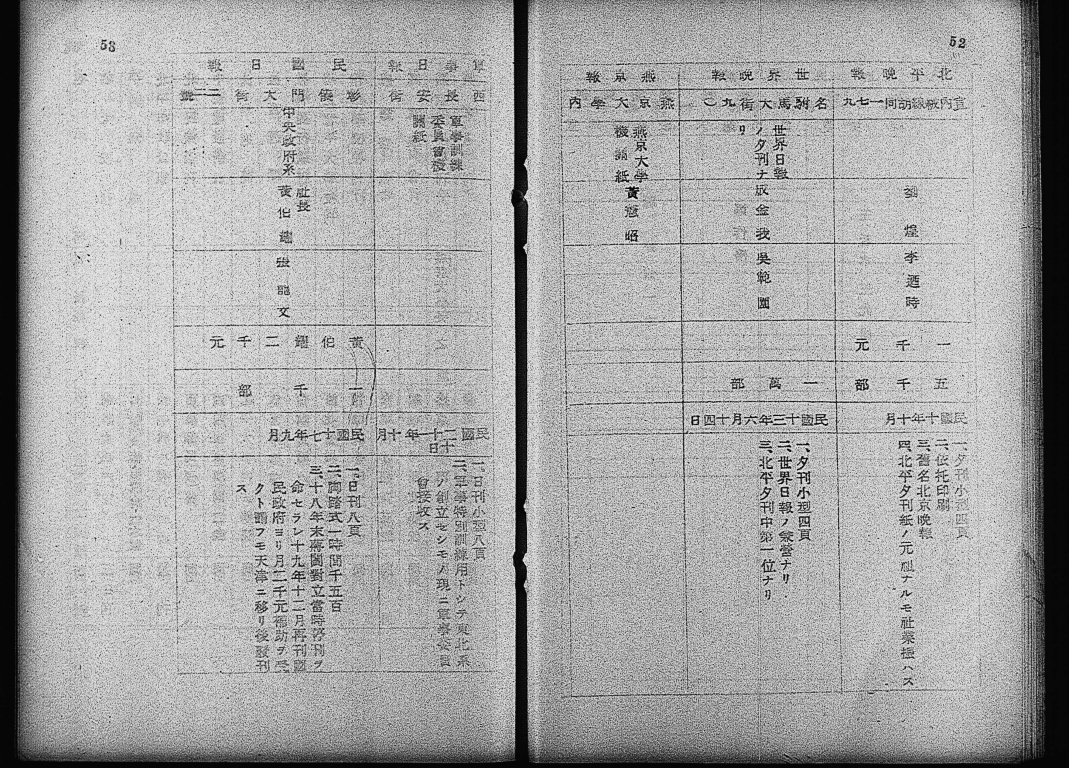 52
北平晩報
宣内板線胡同一七九
劉煌
李迺時
一千元
五千部
民國十年十月
一、夕刊小型四頁
二、依托印刷
三、舊名北京晩報
四、北平夕刊紙ノ元祖ナルモ社業振ハス
世界晩報
石駙馬大街九〇
世界日報
ノ夕刊ナ
リ
成金我
吳範圜
一萬部
民國十三年六月十四日
一、夕刊小型四頁
二、世界日報ノ兼營ナリ
三、北平夕刊中第一位ナリ
燕京報
燕京大學内
燕京大学
機關紙
黃憲昭
53
軍學日報
西長安街
軍學訓練
委員會機
關紙
民國二十一年十月十日
一、日刊小型八頁
二、軍學特別訓練用トシテ東北系
ノ創立セシモノ現ニ軍學委員
會接收ス
民國日報
彰儀門大街二二號
中央政府系
社長
黃伯耀
張龍文
黃伯耀二千元
一千部
民國十七年九月
一、日刊八頁
二、陶踏式一時間千五百
三、十八年末蔣閻對立當時停刊ヲ
命セラレ十九年十二月再刊國
民政府ヨリ月二千元補助ヲ受
クト謂フモ天津ニ移リ後發刊
ス